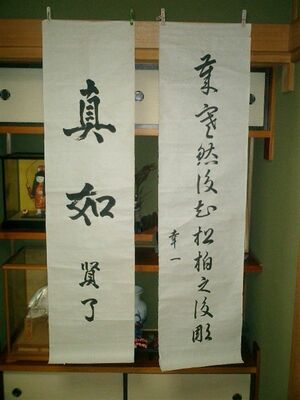 歳寒然後知松柏之後彫
幸一
真如 賢了